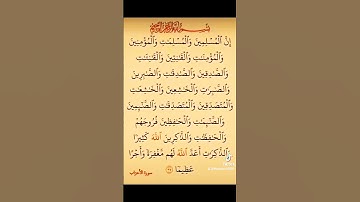 بِسْمِ اللَّهِ الرَّحْمَٰنِ الرَّحِيمِ
إِنَّ ٱلْمُسْلِمِينَ وَٱلْمُسْلِمَٰتِ وَٱلْمُؤْمِنِينَ
وَٱلْمُؤْمِنَٰتِ وَٱلْقَٰنِتِينَ وَٱلْقَٰنِتَٰتِ
وَٱلصَّٰدِقِينَ وَٱلصَّٰدِقَٰتِ وَٱلصَّٰبِرِينَ
وَٱلصَّٰبِرَٰتِ وَٱلْخَٰشِعِينَ وَٱلْخَٰشِعَٰتِ
وَٱلْمُتَصَدِّقِينَ وَٱلْمُتَصَدِّقَٰتِ وَٱلصَّٰٓئِمِينَ
وَٱلصَّٰٓئِمَٰتِ وَٱلْحَٰفِظِينَ فُرُوجَهُمْ
وَٱلْحَٰفِظَٰتِ وَٱلذَّٰكِرِينَ ٱللَّهَ كَثِيرًا
وَٱلذَّٰكِرَٰتِ أَعَدَّ ٱللَّهُ لَهُم مَّغْفِرَةً وَأَجْرًا
عَظِيمًا
سورة الأحزاب